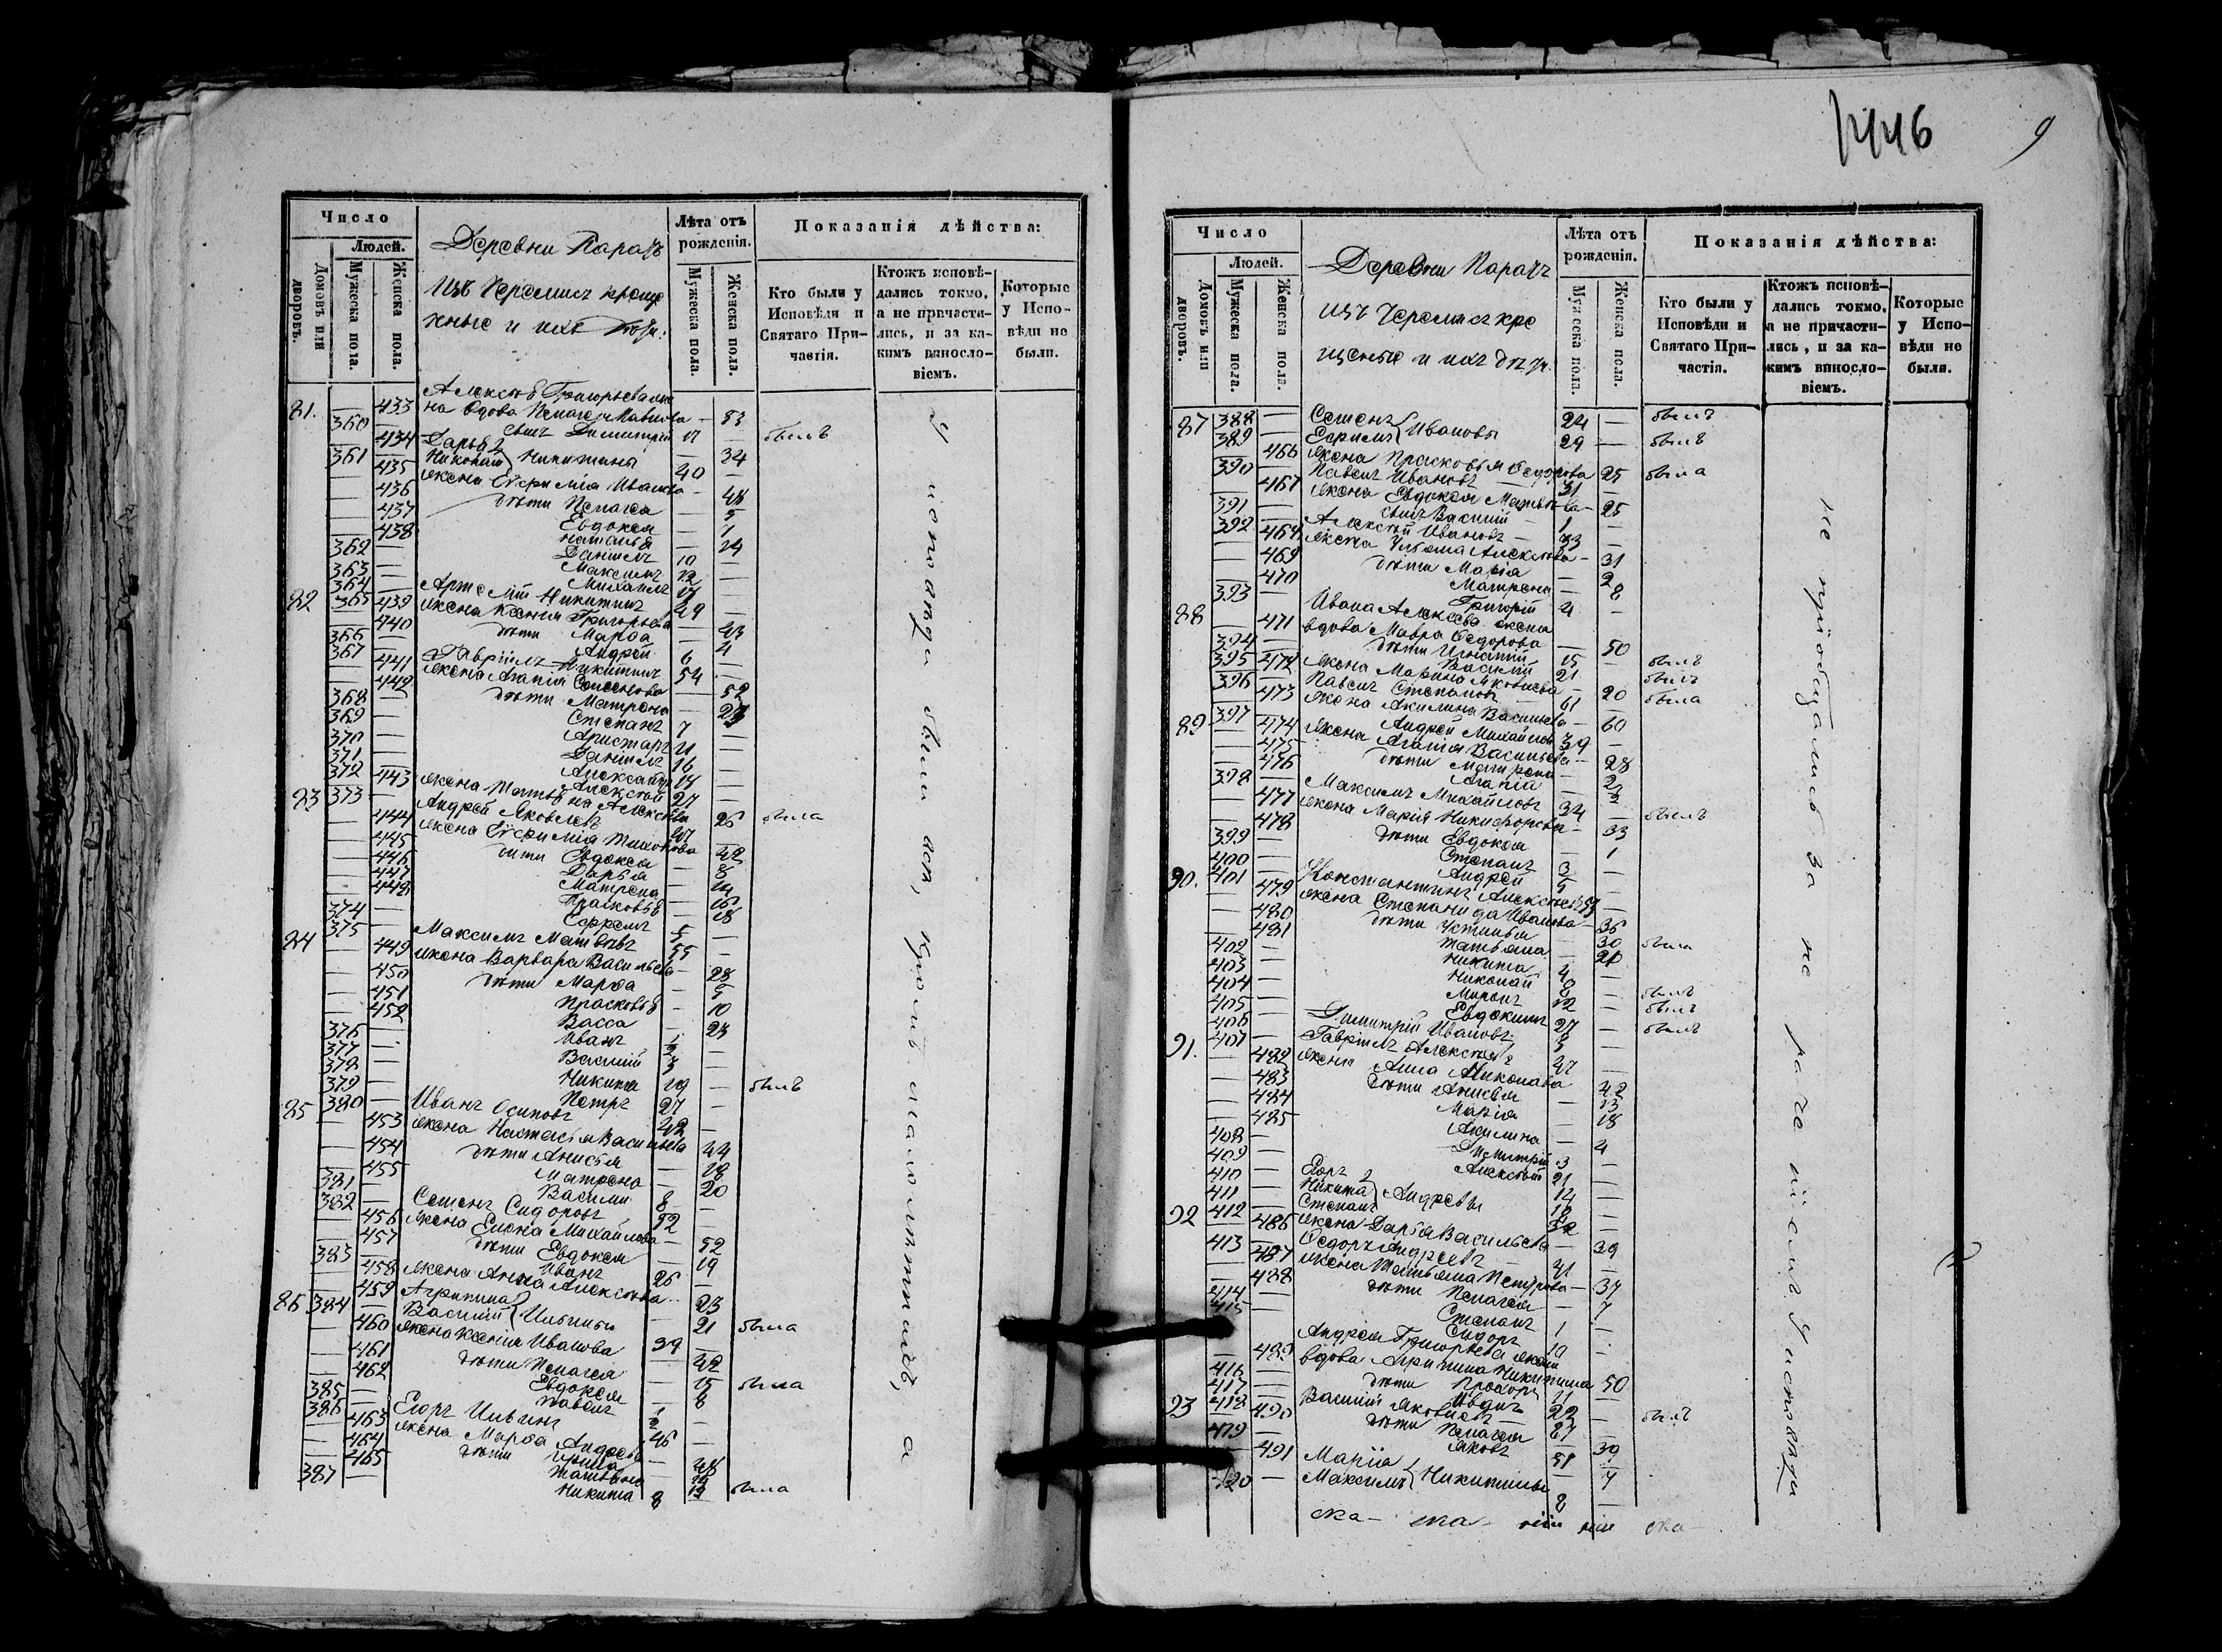 1446
9
Число
Людей.
Домовъ или дворовъ.
Мужеска пола.
Женска пола.
Деревни Паратъ
изъ Черемисъ креще
нные и ихъ дѣти:
Лѣта отъ рожденія.
Мужеска пола.
Женска пола.
Показанія дѣйства:
Кто были у Исповѣди и Святаго Причастія.
Ктожъ исповѣдались токмо, а не причастились, и за какимъ винословіемъ.
Которые у Исповѣди не были.
Алексѣя Григорьева же
81. — 433 на вдова Пелагея — 83
360 — сынъ Димитрій 17 — былъ
— 434 Дарья — 34
361 — Николай } Никитины 40
— 435 жена Евфимія Иванова — 48
— 436 дѣти Пелагея — 5
— 437 Евдокея — 1
— 438 Наталья — 14
362 — Даніилъ 10 —
363 — Максимъ 12 —
364 — Михаилъ 17 —
82 365 — Артемій Никитинъ 49 —
— 439 жена Ксенія Григорьева — 43
— 440 дѣти Марѳа — 4
366 — Андрей 6 —
367 — Гавріилъ Никитинъ 54 —
— 441 жена Агапія Семенова — 52
— 442 дѣти Матрона — 23
368 — Степанъ 7 —
369 — Аристархъ 11 —
370 — Даніилъ 16 —
371 — Александръ 14 —
372 — Алексѣй 27 —
— 443 жена Татьяна Алексѣева — 26 была
83 373 — Андрей Яковлевъ 47 —
— 444 жена Евфимія Тихонова — 42
— 445 дѣти Евдокея — 8
— 446 Дарья — 14
— 447 Матрена — 16
— 448 Прасковья — 18
374 — Ефремъ 5 —
84 375 — Максимъ Матвѣевъ 55 —
— 449 жена Варвара Васильева — 28
— 450 дѣти Марѳа — 5
— 451 Прасковья — 10
— 452 Васса — 23
376 — Иванъ 1 —
377 — Василій 3 —
378 — Никита 19 — былъ
379 — Петръ 27 —
85 380 — Иванъ Осиповъ 42 —
— 453 жена Настасья Васильева — 44
— 454 дѣти Анисья — 18
— 455 Матрена — 20
381 — Василій 8 —
382 — Семенъ Сидоровъ 52 —
— 456 жена Елена Михайлова — 52
— 457 дѣти Евдокея — 19
383 — Иванъ 26 —
— 458 жена Анна Алексѣева — 23
— 459 Агрипина — 21 была
86 384 — Василій } Ильины 39 —
— 460 жена Ксенія Иванова — 42
— 461 дѣти Пелагея — 15 была
— 462 Евдокея — 8
385 — Павелъ 1 —
386 — Егоръ Ильинъ 46 —
— 463 жена Марѳа Андреева — 48
— 464 дѣти Ирина — 14
— 465 Татьяна — 19 была
387 — Никита 8 —
у исповѣди были всѣ, кромѣ малолѣтнихъ, а
Число
Людей.
Домовъ или дворовъ.
Мужеска пола.
Женска пола.
Деревни Паратъ
изъ Черемисъ кре
щеные и ихъ дѣти.
Лѣта отъ рожденія.
Мужеска пола.
Женска пола.
Показанія дѣйства:
Кто были у Исповѣди и Святаго Причастія.
Ктожъ исповѣдались токмо, а не причастились, и за какимъ винословіемъ.
Которые у Исповѣди не были.
87 388 — Семенъ 24 — былъ
389 — Ефимъ } Ивановы 29 — былъ
— 466 жена Прасковья Ѳедорова — 25 была
390 — Павелъ Ивановъ 31 —
— 467 жена Евдокея Матвѣева — 25
391 — сынъ Василій 1 —
392 — Алексѣй Ивановъ 33 —
— 468 жена Ульяна Алексѣева — 31
— 469 дѣти Марія — 2
— 470 Матрена — 8
393 — Григорій 4 —
Ивана Алексѣева жена
88 — 471 вдова Мавра Ѳедорова — 50
394 — дѣти Игнатій 15 — былъ
395 — Василій 21 — былъ
— 472 жена Марина Яковлева — 20 была
396 — Павелъ Степановъ 61 —
— 473 жена Акилина Васильева — 60
89 397 — Андрей Михайловъ 39 —
— 474 жена Агапія Васильева — 28
— 475 дѣти Матрена — 2
— 476 Агапія — 3
398 — Максимъ Михайловъ 34 — былъ
— 477 жена Марія Никифорова — 33
— 478 дѣти Евдокея — 1
399 — Степанъ 3 —
400 — Андрей 5 —
90. 401 — Константинъ Алексѣевъ 59 —
— 479 жена Степанида Иванова — 36
— 480 дѣти Устинья — 30 была
— 481 Татьяна — 20
402 — Никита 4 —
403 — Николай 9 — былъ
404 — Миронъ 12 — былъ
405 — Евдокимъ 27 — былъ
406 — Димитрій Ивановъ 5 —
91. 407 — Гавріилъ Алексѣевъ 47 —
— 482 жена Анна Николаева — 42
— 483 дѣти Анисья — 13
— 484 Марія — 18
— 485 Акилина — 4
408 — Димитрій 3 —
409 — Алексѣй 21 —
410 — Егоръ 14 —
411 — Никита } Андреевы 18 —
92 412 — Степанъ 32 —
— 486 жена Дарья Васильева — 39
413 — Ѳедоръ Андреевъ 41 —
— 487 жена Татьяна Петрова — 37
— 488 дѣти Пелагея — 7
414 — Степанъ 1 —
415 — Сидоръ 10 —
Андрея Григорьева жена
— 489 вдова Агрипина Никитина — 50
416 — дѣти Прохоръ 11 —
417 — 22 — былъ
93 418 — Василій Яковлевъ 87 —
— 490 дѣти Пелагея — 39
419 — Яковъ 51 —
— 491 Марія — 7
420 — Максимъ } Никитины 8 —
не пріобщались за не у исповѣди